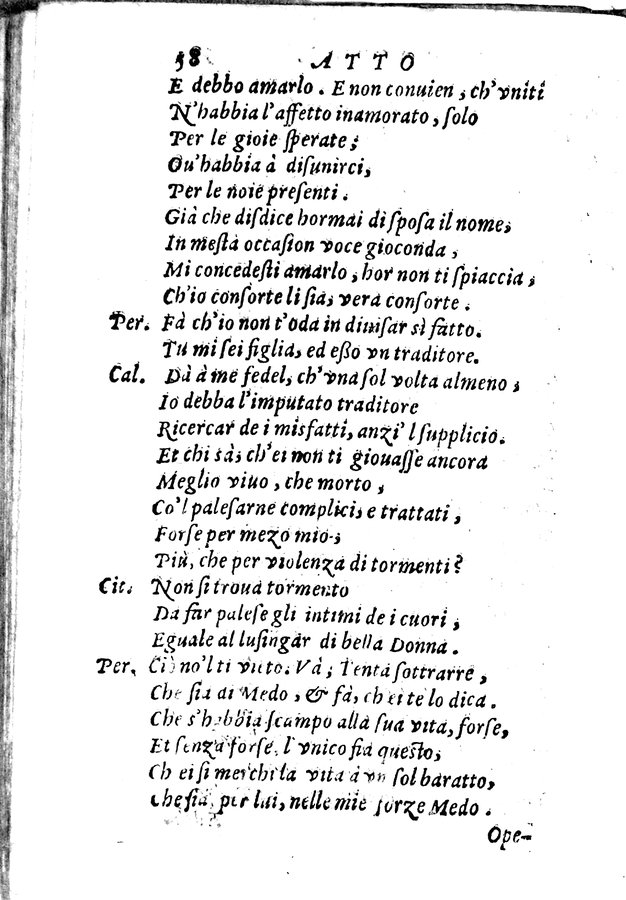 58 ATTO
E debbo amarlo. E non conuien, ch'vniti
N'habbia l'affetto inamorato, solo
Per le gioie sperate;
Ou'habbia à disunirci,
Per le noie presenti.
Già che disdice hormai di sposa il nome,
In mesta occasion voce gioconda,
Mi concedesti amarlo, hor non ti spiaccia,
Ch'io consorte li sia, vera consorte.
Per. Fà ch'io non t'oda in diuisar sì fatto.
Tu mi sei figlia, ed esso vn traditore.
Cal. Dà à me fedel, ch'vna sol volta almeno,
Io debba l'imputato traditore
Ricercar de i misfatti, anzi'l supplicio.
Et chi sà, ch'ei non ti giouasse ancora
Meglio viuo, che morto,
Co'l palesarne complici, e trattati,
Forse per mezo mio;
Più, che per violenza di tormenti?
Cit. Non si troua tormento
Da far palese gli intimi de i cuori,
Eguale al lusingar di bella Donna.
Per. Ciò no'l ti vieto. Và; Tenta sottrarre,
Che sia di Medo, & fà, ch'ei te lo dica.
Che s'habbia scampo alla sua vita, forse,
Et senza forse, l'vnico fia questo,
Ch'ei si merchi la vita à vn sol baratto,
Che sia, per lui, nelle mie forze Medo.
Ope-